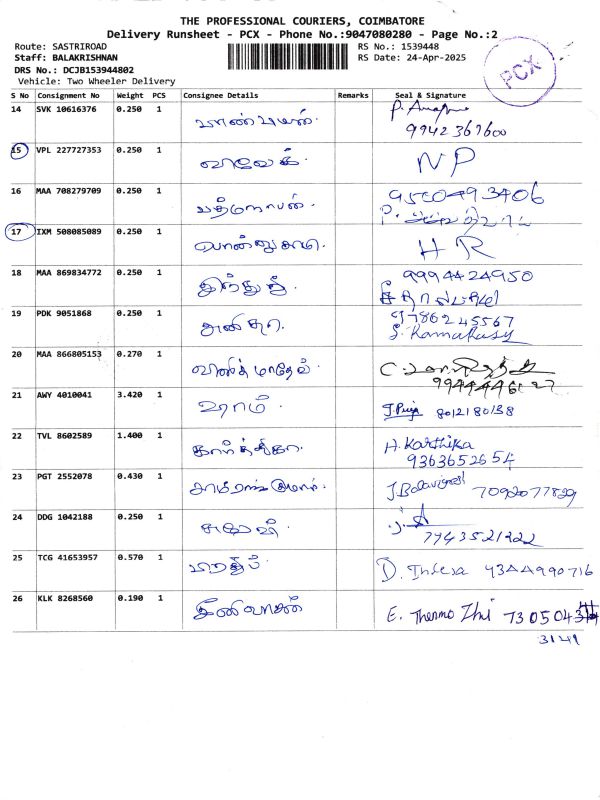 THE PROFESSIONAL COURIERS, COIMBATORE
Delivery Runsheet - PCX - Phone No.:9047080280 - Page No.:2
Route: SASTRIROAD
RS No.: 1539448
Staff: BALAKRISHNAN
RS Date: 24-Apr-2025
DRS No.: DCJB153944802
Vehicle: Two Wheeler Delivery
PCX
S No Consignment No Weight PCS Consignee Details Remarks Seal & Signature
14 SVK 10616376 0.250 1 பாண்டியன்.
9942367600
15 VPL 227727353 0.250 1 விவேக். NP
16 MAA 708279709 0.250 1 பத்மநாபன்.
9500493406
17 IXM 508085089 0.250 1 HR
18 MAA 869834772 0.250 1 இந்துஜ். 9994424950
19 PDK 9051868 0.250 1 அனிதா. 9786245567
20 MAA 866805153 0.270 1
21 AWY 4010041 3.420 1 ராம். J. Priya 8012180138
22 TVL 8602589 1.400 1 கார்த்திகா. H. Karthika
9363652654
23 PGT 2552078 0.430 1 7092077829
24 DDG 1042188 0.250 1
7743521322
25 TCG 41653957 0.570 1 பரத். 9344990716
26 KLK 8268560 0.190 1 சீனிவாசன் E. Thermo Zhi 730504
3149